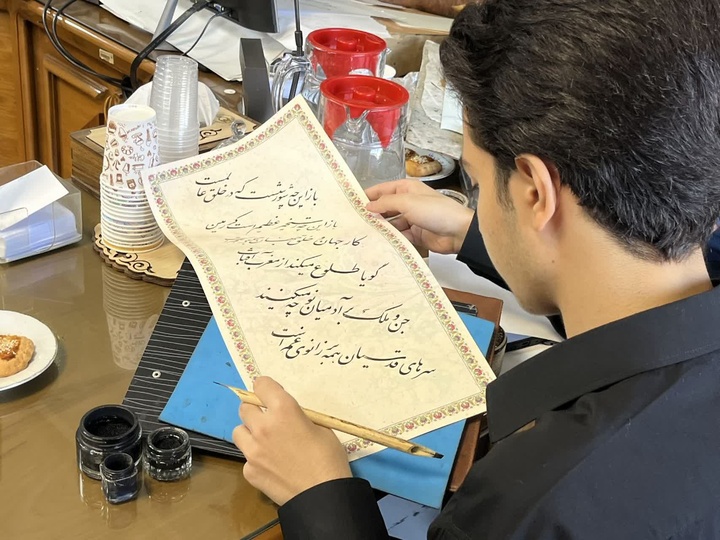 باز این چه شورش است که در خلق عالم است
باز این چه رستخیز عظیم است کز زمین
کار جهان
گویا طلوع میکند از مغرب آفتاب
جن و ملک بر آدمیان نوحه میکنند
سرهای قدسیان همه بر زانوی غم است